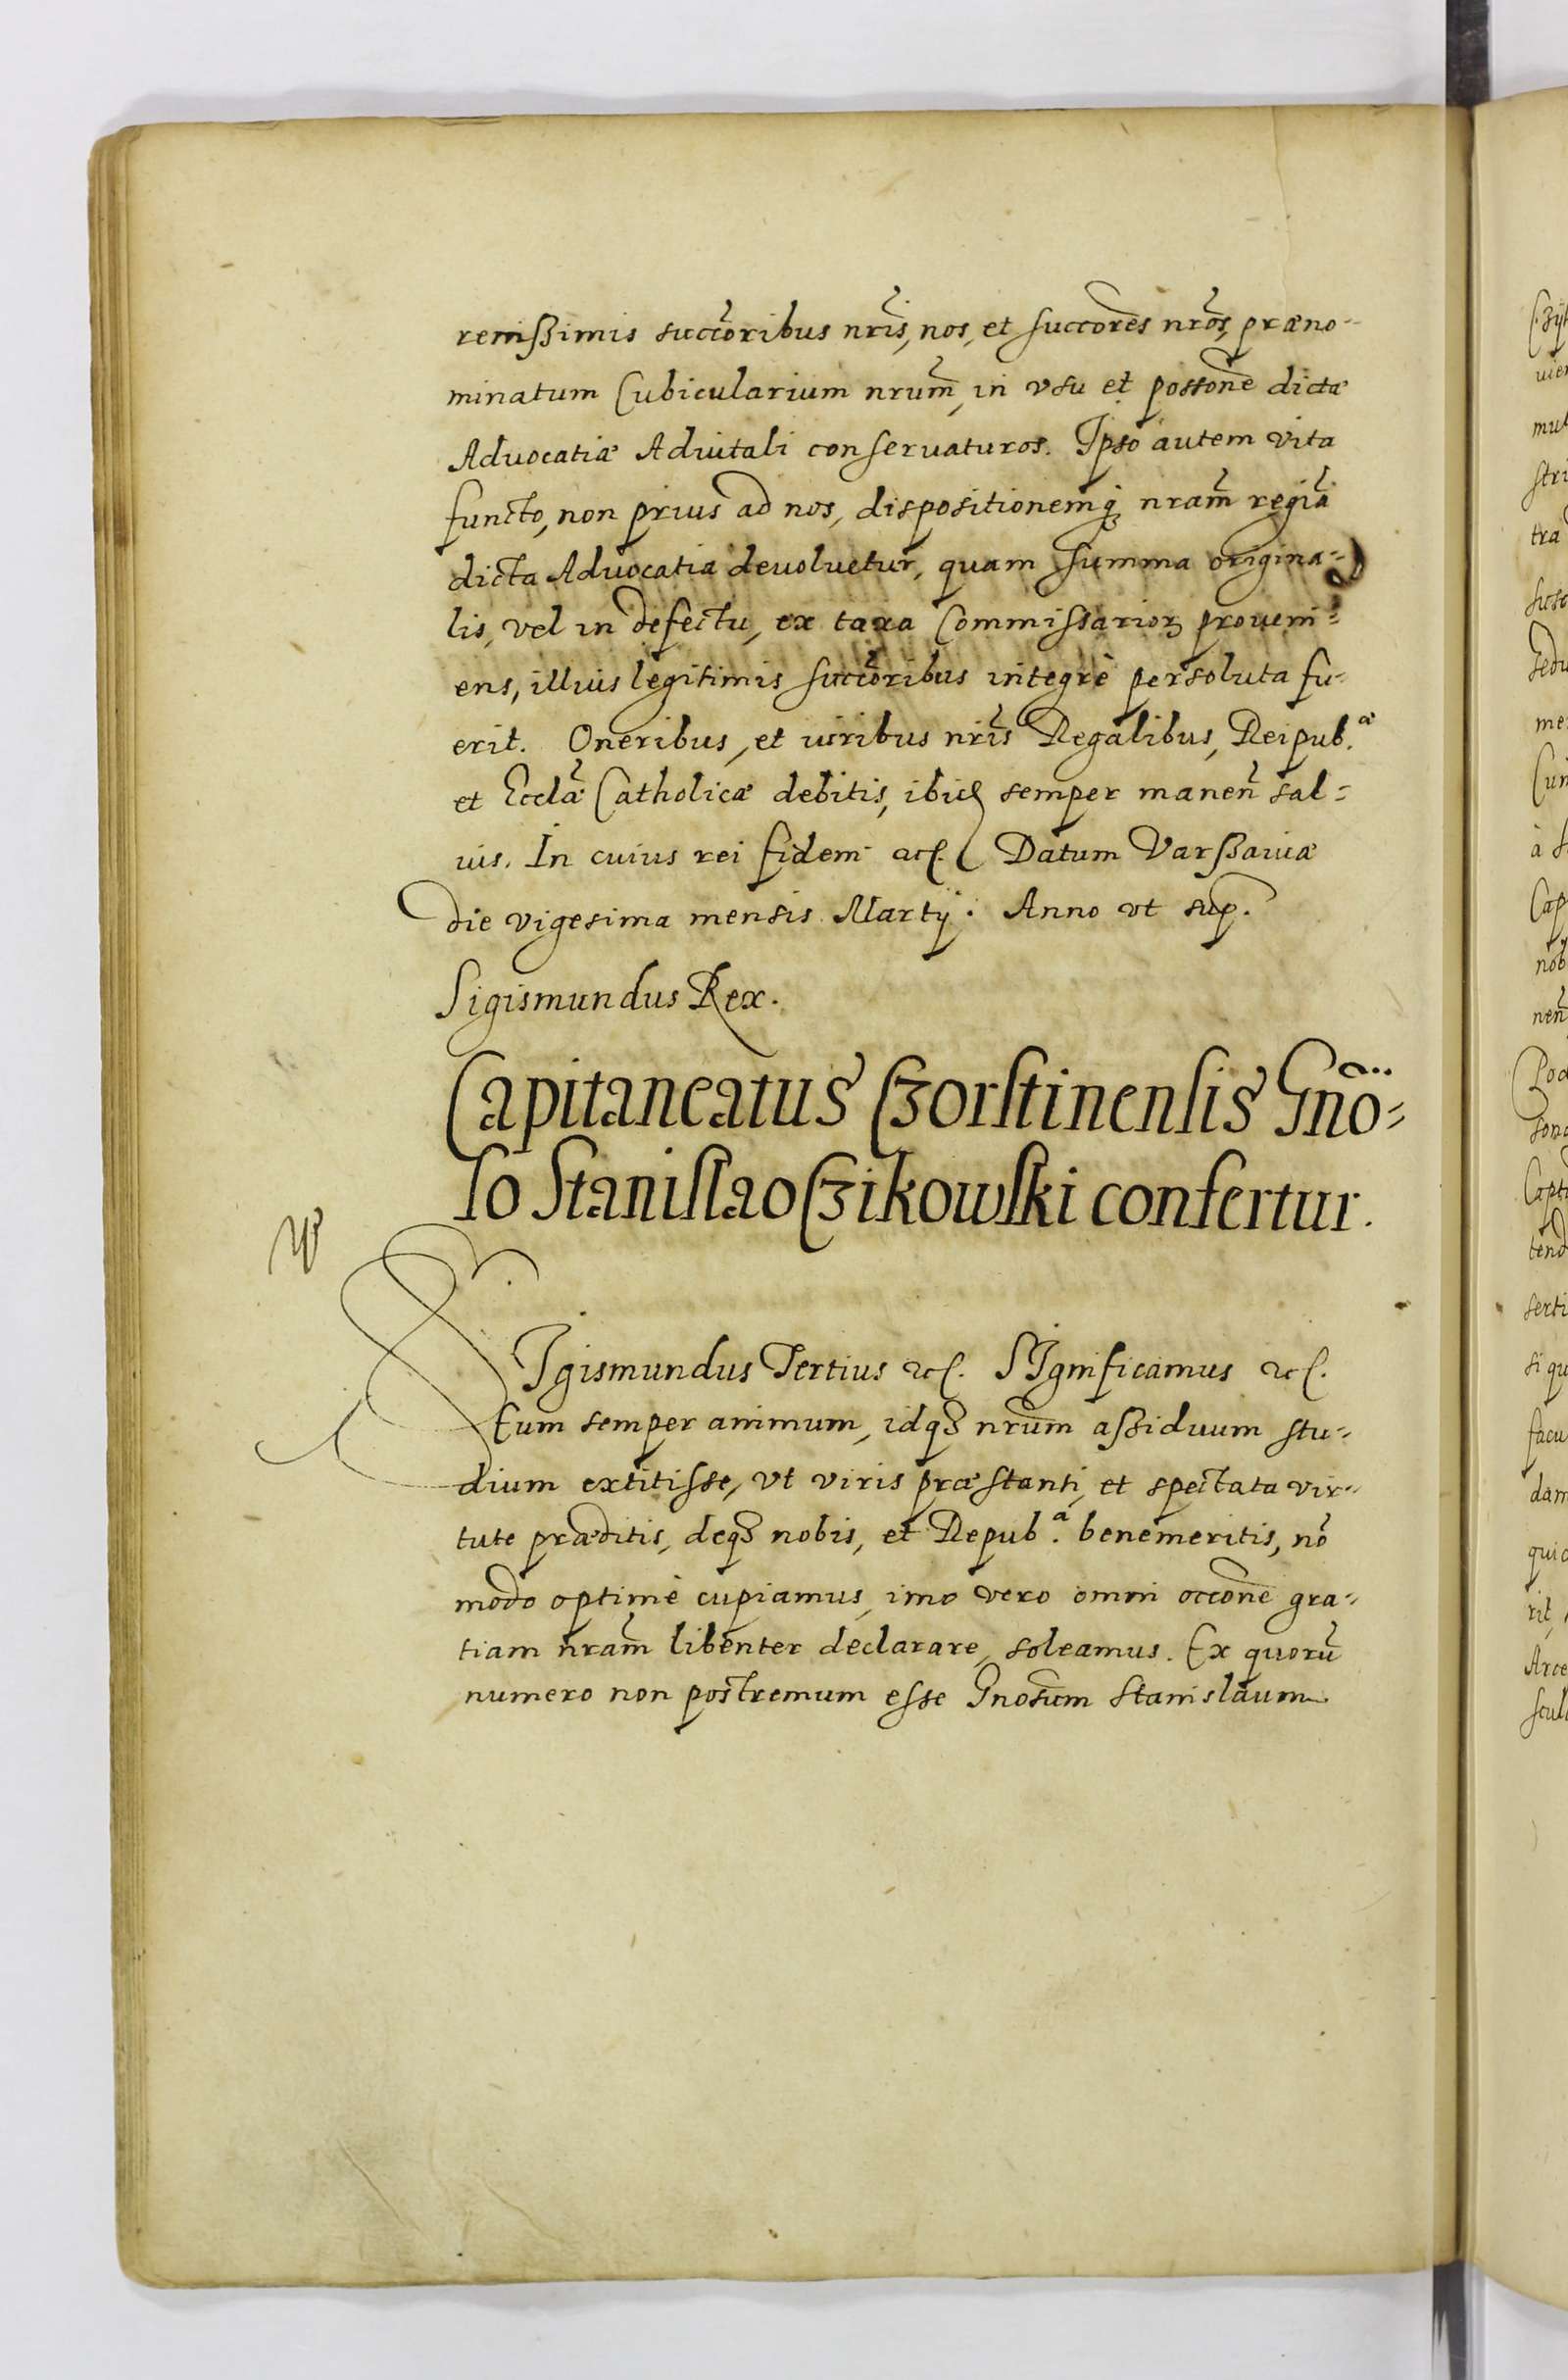 renissimis succ̃oribus nr̃is, nos, et succor̃es nr̃os, præno-
minatum Cubicularium nrum̃, in vsu et possone͂ dictæ
Advocatiæ Aduitali conseruaturos. Ipso autem vita
functo, non prius ad nos, dispositionemq́; nram̃ regiã
dicta Advocatia devoluetur, quam summa origina-
lis, vel in defectu, ex taxa Commissarioꝝ proveni=
ens, illius legitimis succ̃oribus integrè persoluta fu-
erit. Oneribus, et iuribus nr̃is Regalibus, Reipub.æ
et Eccłæ Catholicæ debitis, ibid. semper maneñ sal=
uis. In cuius rei fidem ac. Datum Varßauiæ
die vigesima mensis Martÿ. Anno vt sup.
Sigismundus Rex.
Capitaneatus Czorstinensis Gnõ=
so Stanislao Czikowski confertur.
SIgismundus Tertius ꝛc. SIgnificamus ꝛc.
Eum semper animum, idqꝫ nrũm aßiduum stu-
dium extitisse, vt viris præstanti, et spectata vir-
tute præditis, deqꝫ nobis, et Repub.a benemeritis, nõ
modo optimè cupiamus, imo vero omni occone͂ gra-
tiam nram̃ libenter declarare, soleamus. Ex quorũ
numero non postremum esse Gnosũm Stanislaum